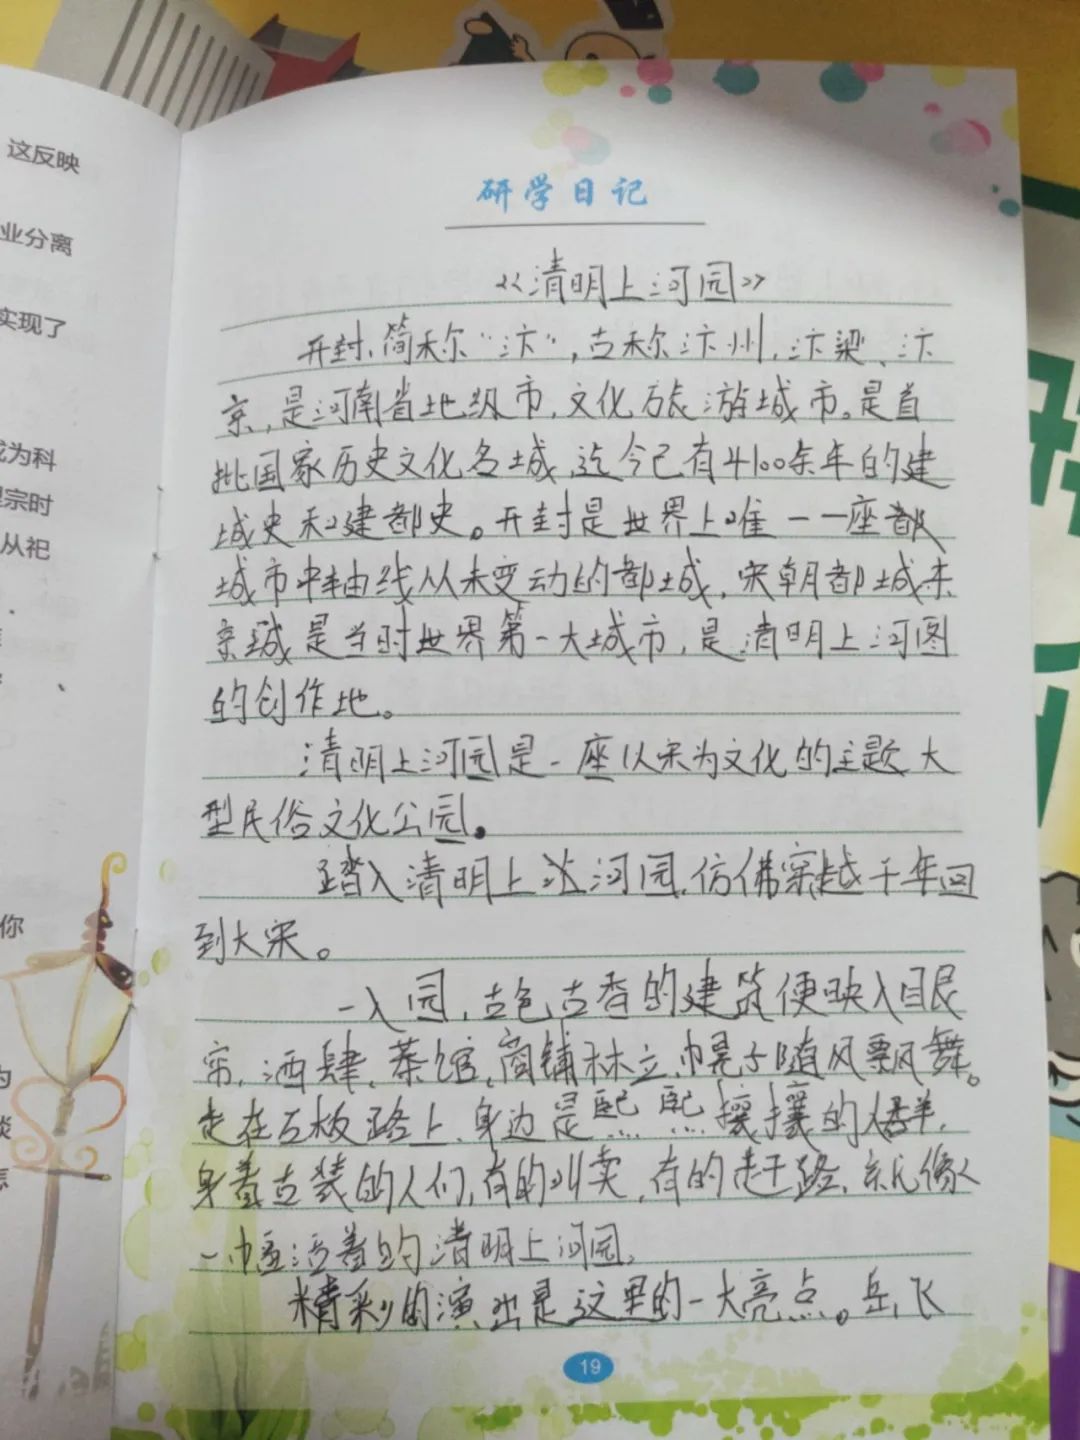 这反映
业分离
实现了
成为科
理宗时
从祀
你
研学日记
《清明上河园》
开封，简称“汴”，古称汴州，汴梁、汴
京，是河南省地级市，文化旅游城市。是首
批国家历史文化名城，迄今已有4100余年的建
城史和建都史。开封是世界上唯一一座都
城市中轴线从未变动的都城，宋朝都城东
京城是当时世界第一大城市，是清明上河图
的创作地。
清明上河园是一座以宋为文化的主题大
型民俗文化公园。
踏入清明上河园，仿佛穿越千年回
到大宋。
一入园，古色古香的建筑便映入目民
帘，酒肆，茶馆，商铺林立，幌子随风飘舞。
走在石板路上，身边是熙熙攘攘的人群，
身着古装的人们，有的叫卖，有的赶路，就像
一幅活着的清明上河园，
精彩的演出是这里的一大亮点。岳飞
19